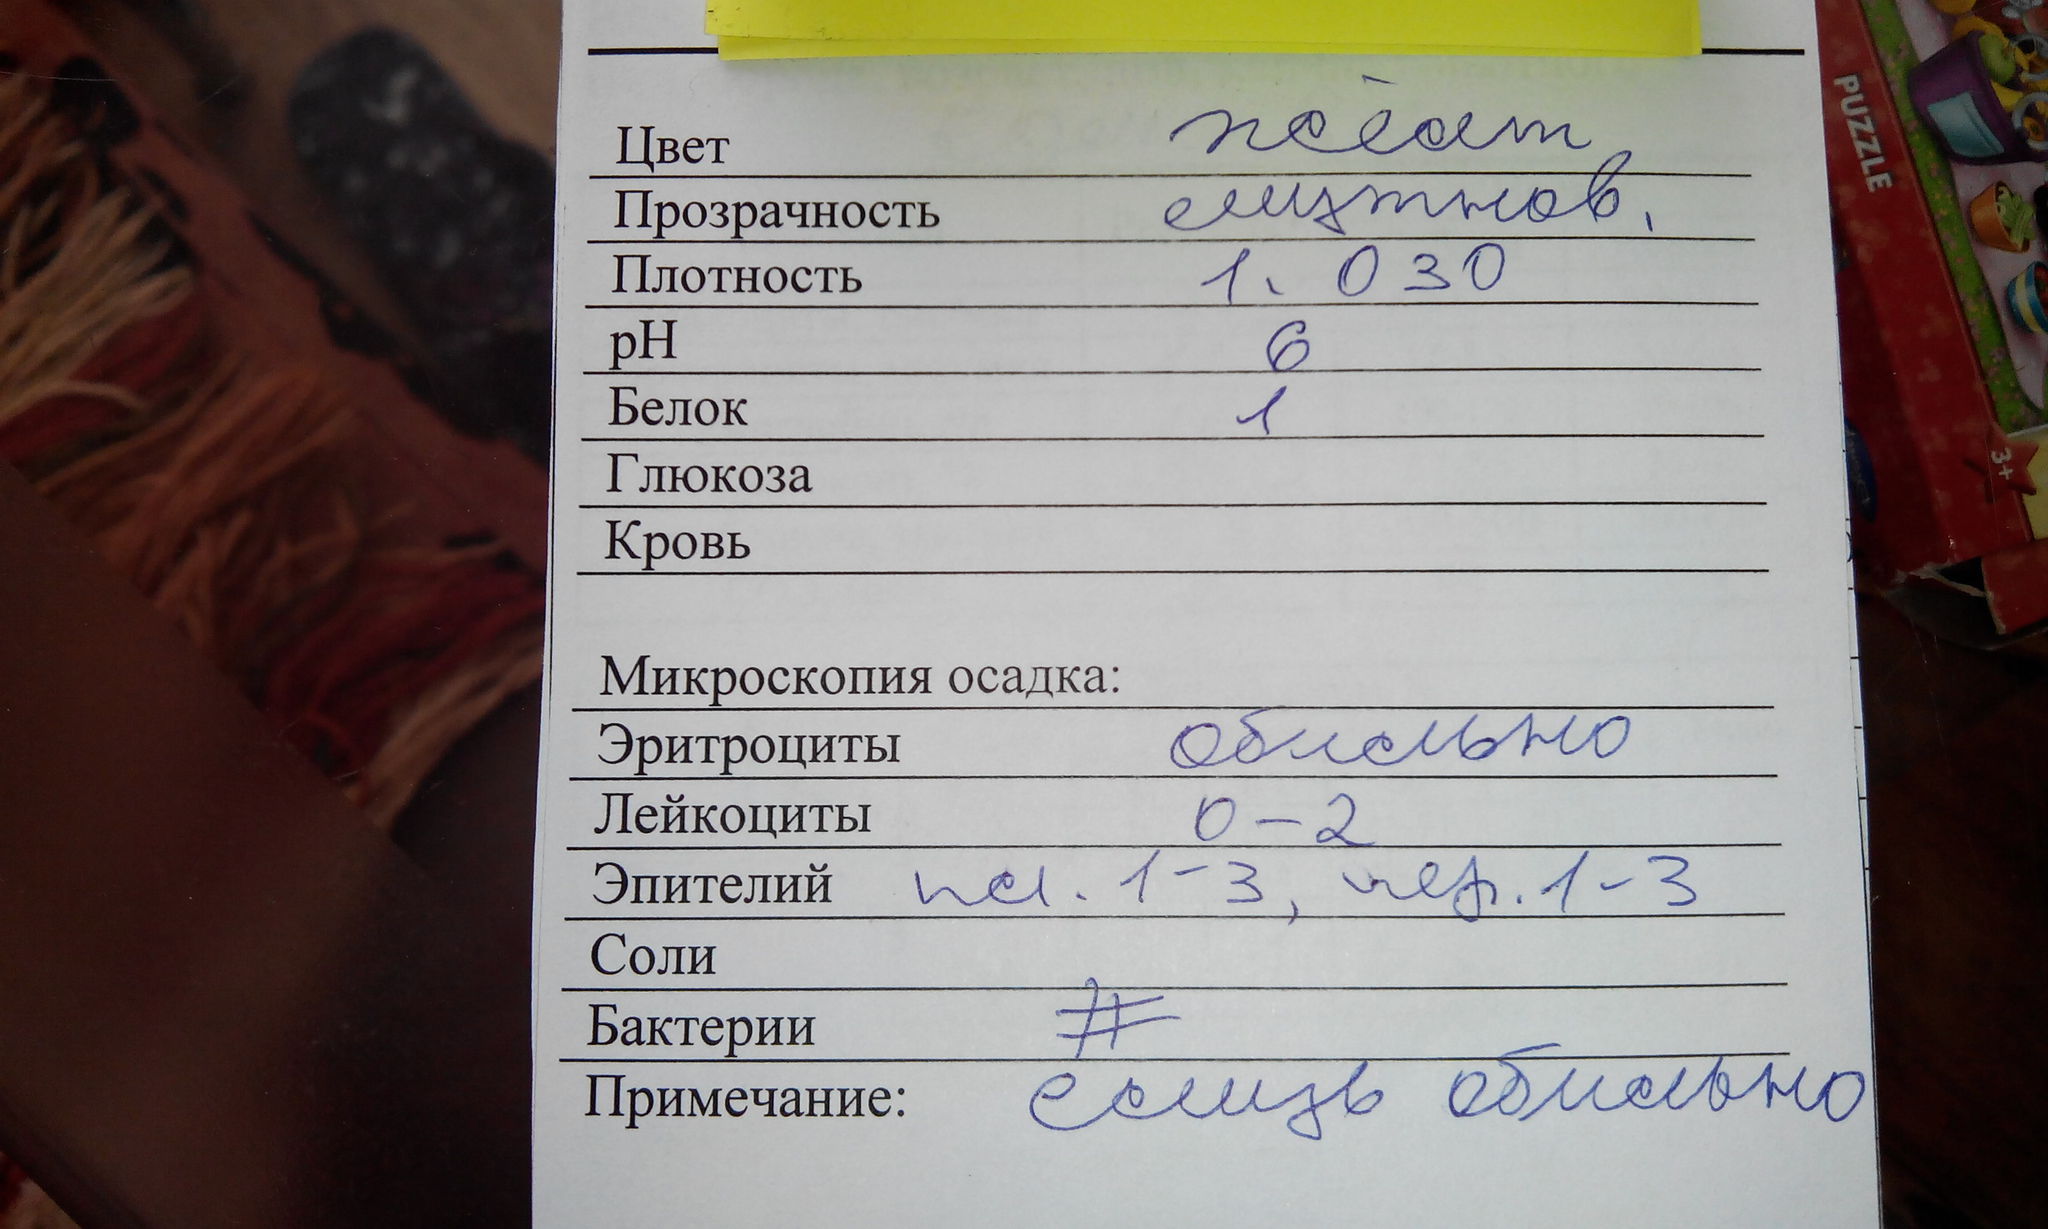 Цвет жёлт
Прозрачность мутнов.
Плотность 1.030
pH 6
Белок 1
Глюкоза
Кровь
Микроскопия осадка:
Эритроциты обильно
Лейкоциты 0-2
Эпителий пл. 1-3, пер. 1-3
Соли
Бактерии #
Примечание: слизь обильно
PUZZLE
3+